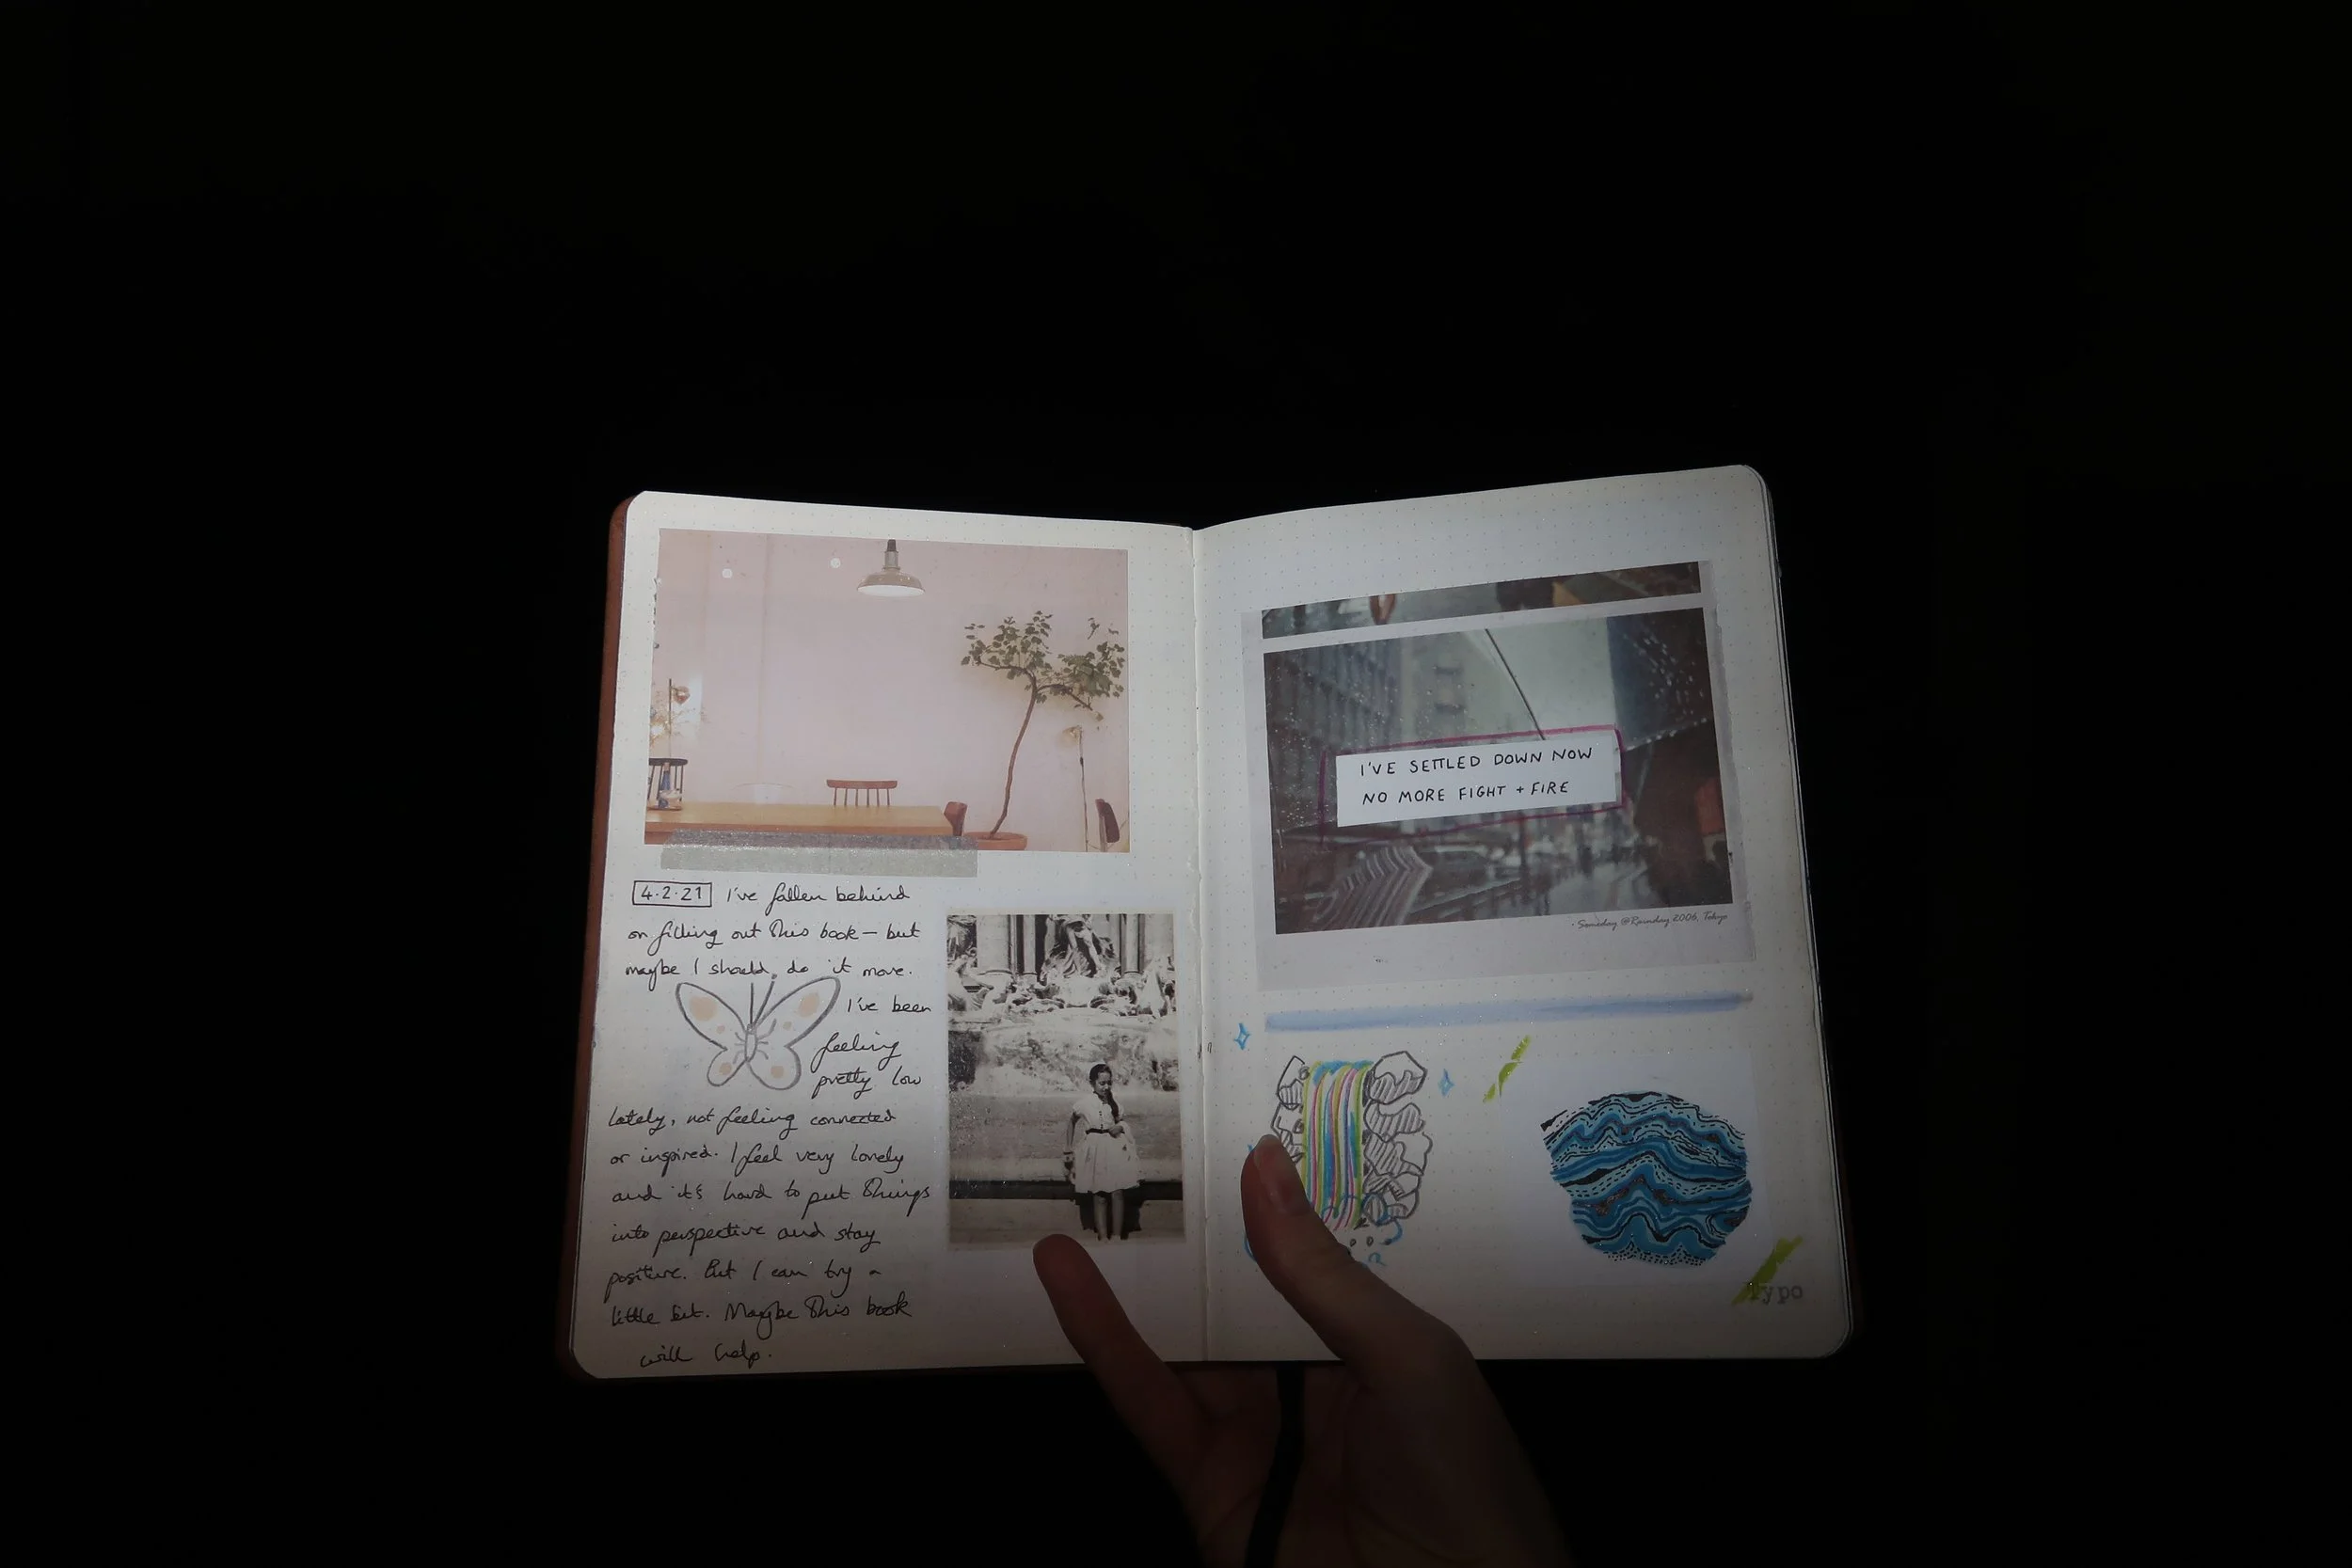 4.2.21 I've fallen behind
on filling out this book — but
maybe I should do it more.
I've been
feeling
pretty low
lately, not feeling connected
or inspired. I feel very lonely
and it's hard to put things
into perspective and stay
positive. But I can try a
little bit. Maybe this book
will help.
I'VE SETTLED DOWN NOW
NO MORE FIGHT + FIRE
· Someday @Rainday 2006, Tokyo
Typo